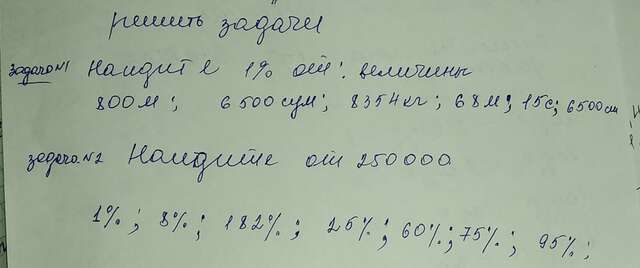 решить задачи
задача №1 Найдите 1% от: величины
800м; 6500сум; 8354кг; 68м; 15с; 6500см
задача №2 Найдите от 250000
1%; 8%; 182%; 25%; 60%; 75%; 95%;